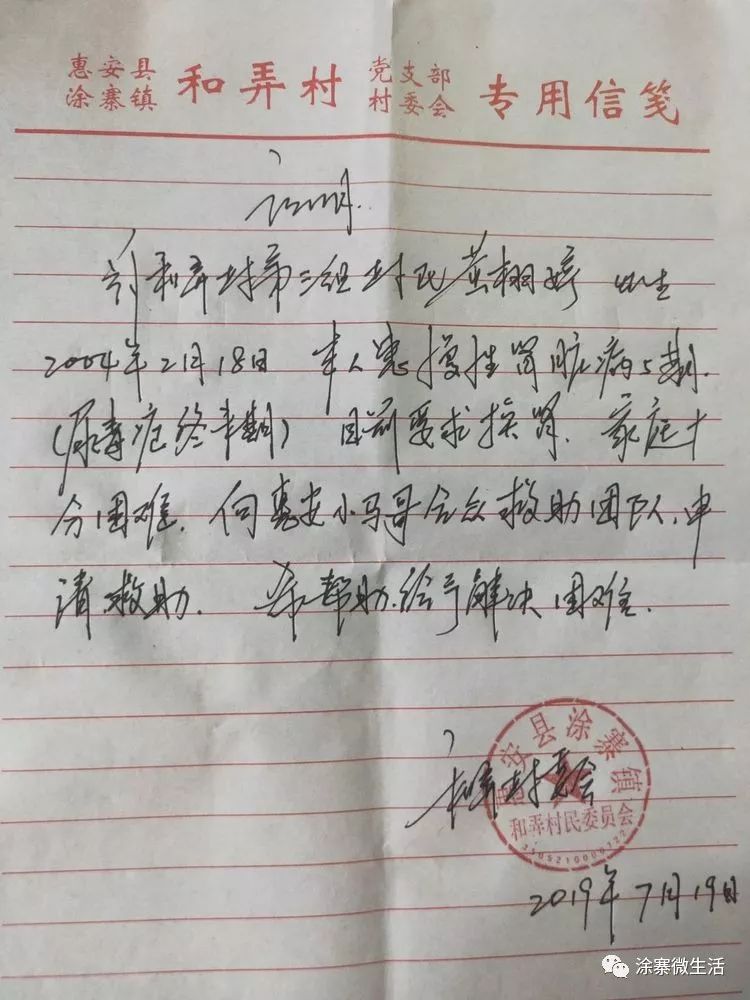 惠安县 涂寨镇 和弄村 党支部 村委会 专用信笺
证明
和弄村第三组村民黄栩婷 出生
2004年2月18日 本人患慢性肾脏病5期.
(尿毒症终末期) 目前要求换肾. 家庭十
分困难. 向惠安小马哥合众救助团队.申
请救助. 希帮助.给予解决困难.
惠安县涂寨镇
和弄村民委员会
和弄村委会
2019年7月19日
涂寨微生活